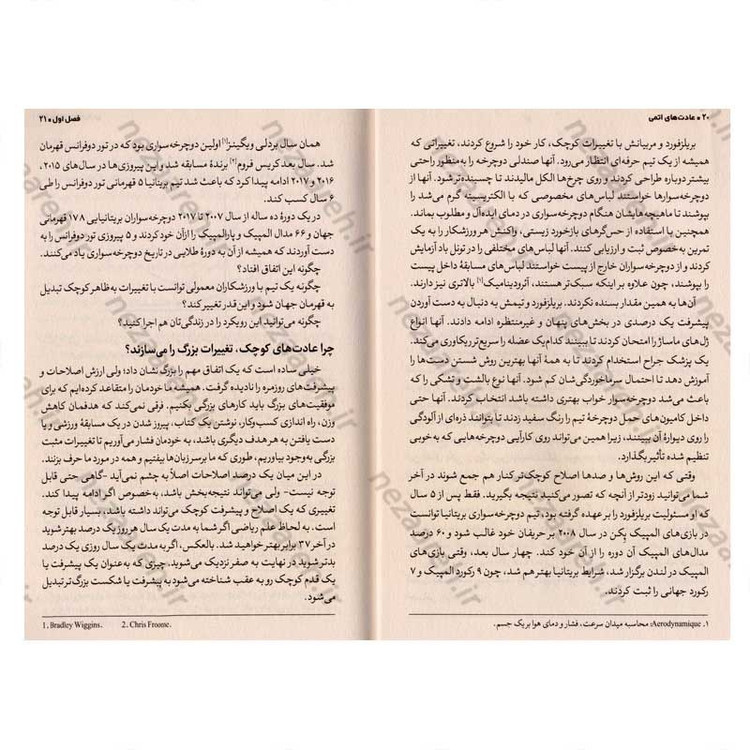 ۲۰ • عادت‌های اتمی
بریلزفورد و مربیانش با تغییرات کوچک، کار خود را شروع کردند، تغییراتی که
همیشه از یک تیم حرفه‌ای انتظار می‌رود. آنها صندلی دوچرخه را به‌منظور راحتی
بیشتر دوباره طراحی کردند و روی چرخ‌ها الکل مالیدند تا چسبنده‌تر شود. آنها از
دوچرخه‌سوارها خواستند لباس‌های مخصوصی که با الکتریسیته گرم می‌شد را
بپوشند تا ماهیچه‌هایشان هنگام دوچرخه‌سواری در دمای ایده‌آل و مطلوب بماند.
همچنین با استفاده از حس‌گرهای بازخورد زیستی، واکنش هر ورزشکار را به یک
تمرین به‌خصوص ثبت و ارزیابی کنند. آنها لباس‌های مختلفی را در تونل باد آزمایش
کردند و از دوچرخه سواران خارج از پیست خواستند لباس‌های مسابقهٔ داخل پیست
را بپوشند، چون علاوه بر اینکه سبک‌تر هستند، آئرودینامیک[۱] بالاتری نیز دارند.
آن‌ها به همین مقدار بسنده نکردند. بریلزفورد و تیمش به دنبال به دست آوردن
پیشرفت یک درصدی در بخش‌های پنهان و غیرمنتظره ادامه دادند. آنها انواع
ژل‌های ماساژ را امتحان کردند تا ببینند کدام یک عضله را سریع‌تر ریکاوری می‌کند.
یک پزشک جراح استخدام کردند تا به همهٔ آنها بهترین روش شستن دست‌ها را
آموزش دهد تا احتمال سرماخوردگی‌شان کم شود. آنها نوع بالشت و تشکی را که
باعث می‌شد دوچرخه‌سوار خواب بهتری داشته باشد انتخاب کردند. آنها حتی
داخل کامیون‌های حمل دوچرخهٔ تیم را رنگ سفید زدند تا بتوانند ذره‌ای از آلودگی
را روی دیوارهٔ آن ببینند، زیرا همین می‌تواند روی کارآیی دوچرخه‌هایی که به‌خوبی
تنظیم شده تأثیر بگذارد.
وقتی که این روش‌ها و صدها اصلاح کوچک‌تر کنار هم جمع شوند در آخر
شما می‌توانید زودتر از آنچه که تصور می‌کنید نتیجه بگیرید. فقط پس از ۵ سال
که او مسئولیت بریلزفورد را بر عهده گرفته بود، تیم دوچرخه سواری بریتانیا توانست
در بازی‌های المپیک پکن در سال ۲۰۰۸ بر حریفان خود غالب شود و ۶۰ درصد
مدال‌های المپیک آن دوره را از آن خود کند. چهار سال بعد، وقتی بازی‌های
المپیک در لندن برگزار شد، شرایط بریتانیا بهتر هم شد، چون ۹ رکورد المپیک و ۷
رکورد جهانی را ثبت کردند.
۱. Aerodynamique: محاسبه میدان سرعت، فشار و دمای هوا بر یک جسم.
فصل اول • ۲۱
همان سال بردلی ویگینز[۱] اولین دوچرخه‌سواری بود که در تور دوفرانس قهرمان
شد. سال بعد کریس فروم[۲] برندهٔ مسابقه شد، و این پیروزی‌ها در سال‌های ۲۰۱۵،
۲۰۱۶ و ۲۰۱۷ ادامه پیدا کرد که باعث شد تیم بریتانیا ۵ قهرمانی تور دوفرانس را طی
۶ سال کسب کند.
در یک دورهٔ ده ساله از سال ۲۰۰۷ تا ۲۰۱۷ دوچرخه‌سواران بریتانیایی ۱۷۸ قهرمانی
جهان و ۶۶ مدال المپیک و پارالمپیک را از آن خود کردند و ۵ پیروزی تور دوفرانس را به
دست آوردند که همیشه از آن به دورهٔ طلایی در تاریخ دوچرخه سواری یاد می‌کنند.
چگونه این اتفاق افتاد؟
چگونه یک تیم با ورزشکاران معمولی توانست با تغییرات به‌ظاهر کوچک تبدیل
به قهرمان جهان شود و این قدر تغییر کند؟
چگونه می‌توانید این رویکرد را در زندگی‌تان هم اجرا کنید؟
چرا عادت‌های کوچک، تغییرات بزرگ را می‌سازند؟
خیلی ساده است که یک اتفاق مهم را بزرگ نشان داد؛ ولی ارزش اصلاحات و
پیشرفت‌های روزمره را نادیده گرفت. همیشه ما خودمان را متقاعد کرده‌ایم که برای
موفقیت‌های بزرگ باید کارهای بزرگی بکنیم. فرقی نمی‌کند که هدفمان کاهش
وزن، راه اندازی کسب‌وکار، نوشتن یک کتاب، پیروز شدن در یک مسابقهٔ ورزشی و یا
دست یافتن به هر هدف دیگری باشد، به خودمان فشار می‌آوریم تا تغییرات مثبت
بزرگی به‌وجود بیاوریم، طوری که ما بر سر زبان‌ها بیفتیم و همه در مورد ما حرف بزنند.
در این میان یک درصد اصلاحات اصلاً به چشم نمی‌آید -گاهی حتی قابل
توجه نیست- ولی می‌تواند نتیجه‌بخش باشد، به‌خصوص اگر ادامه پیدا کند.
تغییری که یک اصلاح و پیشرفت کوچک می‌تواند داشته باشد، بسیار قابل توجه
است. به لحاظ علم ریاضی اگر شما به مدت یک سال هر روز یک درصد بهتر شوید
در آخر ۳۷ برابر بهتر خواهید شد. بالعکس، اگر به مدت یک سال روزی یک درصد
بدتر شوید در نهایت به صفر نزدیک می‌شوید. چیزی که به‌عنوان یک پیشرفت یا
یک قدم کوچک رو به عقب شناخته می‌شود به پیشرفت یا شکست بزرگ‌تر تبدیل
می‌شود.
1. Bradley Wiggins. 2. Chris Froome.
nezareh.ir